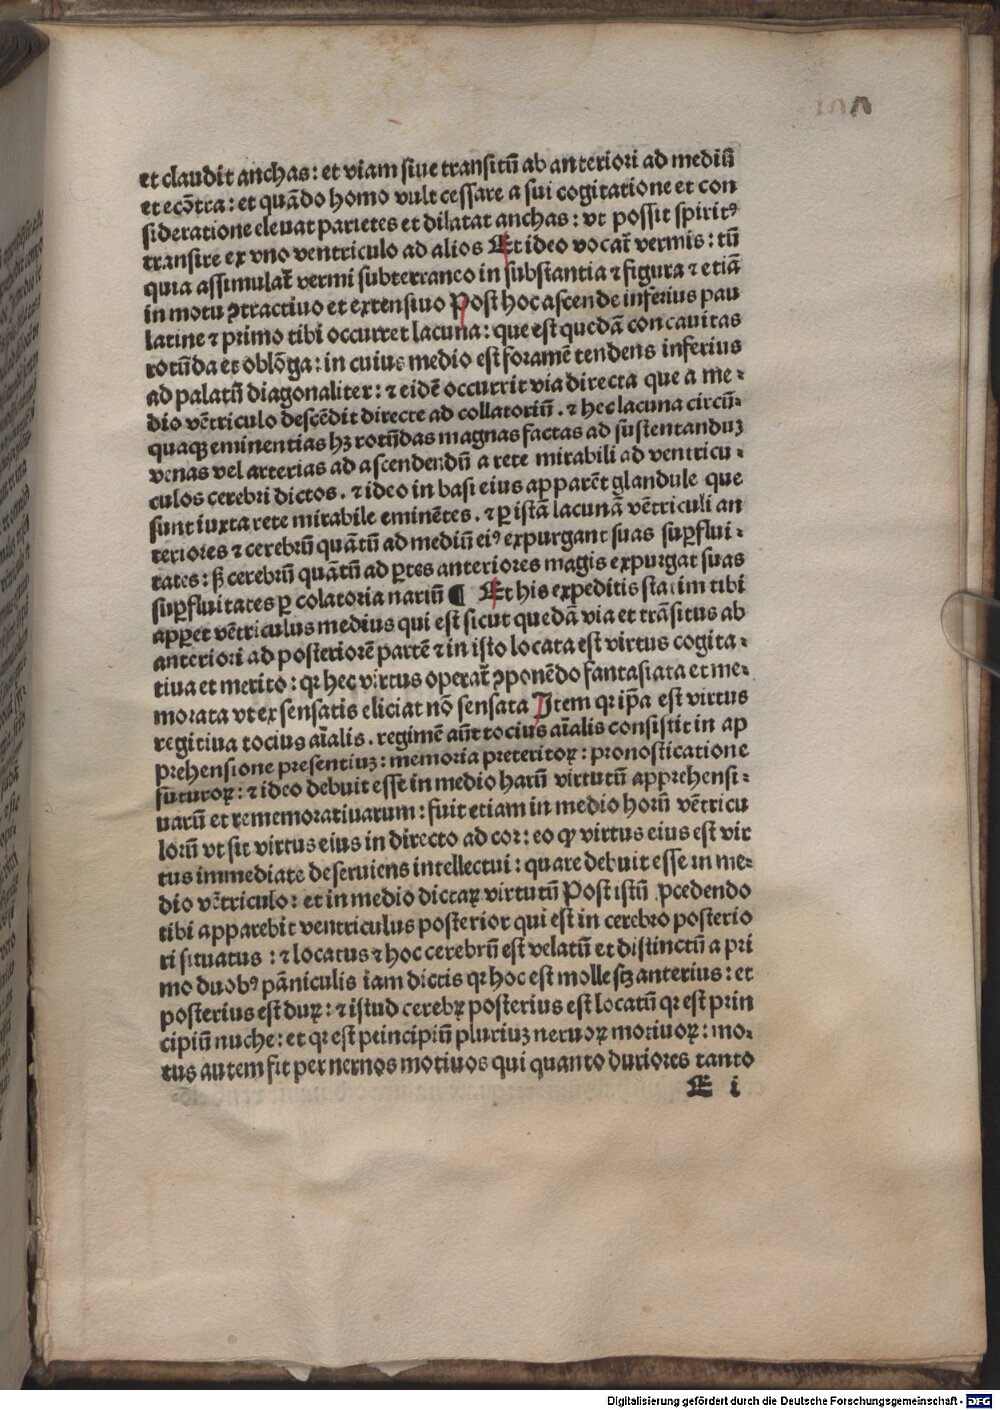 et claudit anchas: et viam siue transitū ab anteriori ad mediū
et ecōtra: et quādo homo vult cessare a sui cogitatione et con
sideratione eleuat parietes et dilatat anchas: vt possit spiritꝰ
transire ex vno ventriculo ad alios Et ideo vocat̄ vermis: tū
quia assimulat̄ vermi subterraneo in substantia ⁊ figura ⁊ etiā
in motu ꝯtractiuo et extensiuo Post hoc ascende inferius pau
latine ⁊ primo tibi occurret lacuna: que est quedā concauitas
rotūda et oblōga: in cuius medio est foramē tendens inferius
ad palatū diagonaliter: ⁊ eidē occurrit via directa que a me⸗
dio vētriculo descēdit directe ad collatoriū. ⁊ hec lacuna circū⸗
quaqꝫ eminentias hꝫ rotūdas magnas factas ad sustentanduꝫ
venas vel arterias ad ascendendū a rete mirabili ad ventricu⸗
culos cerebri dictos. ⁊ ideo in basi eius apparēt glandule que
sunt iuxta rete mirabile eminētes. ⁊ ꝑ istā lacunā vētriculi an
teriores ⁊ cerebrū quātū ad mediū eiꝰ expurgant suas suꝑflui⸗
tates: sꝫ cerebrū quātū ad ꝑtes anteriores magis expurgat suas
suꝑfluitates ꝑ colatoria nariū ¶ Et his expeditis statim tibi
apꝑet vētriculus medius qui est sicut quedā via et trāsitus ab
anteriori ad posteriorē partē ⁊ in isto locata est virtus cogita⸗
tiua et merito: qꝛ hec virtus operat̄ ꝯponēdo fantasiata et me⸗
morata vt ex sensatis eliciat nō sensata Item qꝛ ip̄a est virtus
regitiua tocius aīalis. regimē aūt tocius aīalis consistit in ap
prehensione presentiuꝫ: memoria preteritoꝝ: pronosticatione
futuroꝝ: ⁊ ideo debuit esse in medio harū virtutū apprehensi⸗
uarū et rememoratiuarum: fuit etiam in medio horū vētricu
lorū vt sit virtus eius in directo ad cor: eo ꝙ virtus eius est vir
tus immediate deseruiens intellectui: quare debuit esse in me⸗
dio vētriculo: et in medio dictaꝝ virtutū Post istū ꝓcedendo
tibi apparebit ventriculus posterior qui est in cerebro posterio
ri situatus: ⁊ locatus ⁊ hoc cerebrū est velatū et distinctū a pri
mo duobꝰ pāniculis iam dictis qꝛ hoc est molle scꝫ anterius: et
posterius est duꝝ: ⁊ istud cerebꝝ posterius est locatū qꝛ est prin
cipiū nuche: et qꝛ est peincipiū pluriuꝫ neruoꝝ motiuoꝝ: mo⸗
tus autem fit per nernos motiuos qui quanto duriores tanto
E i
Digitalisierung gefördert durch die Deutsche Forschungsgemeinschaft - DFG